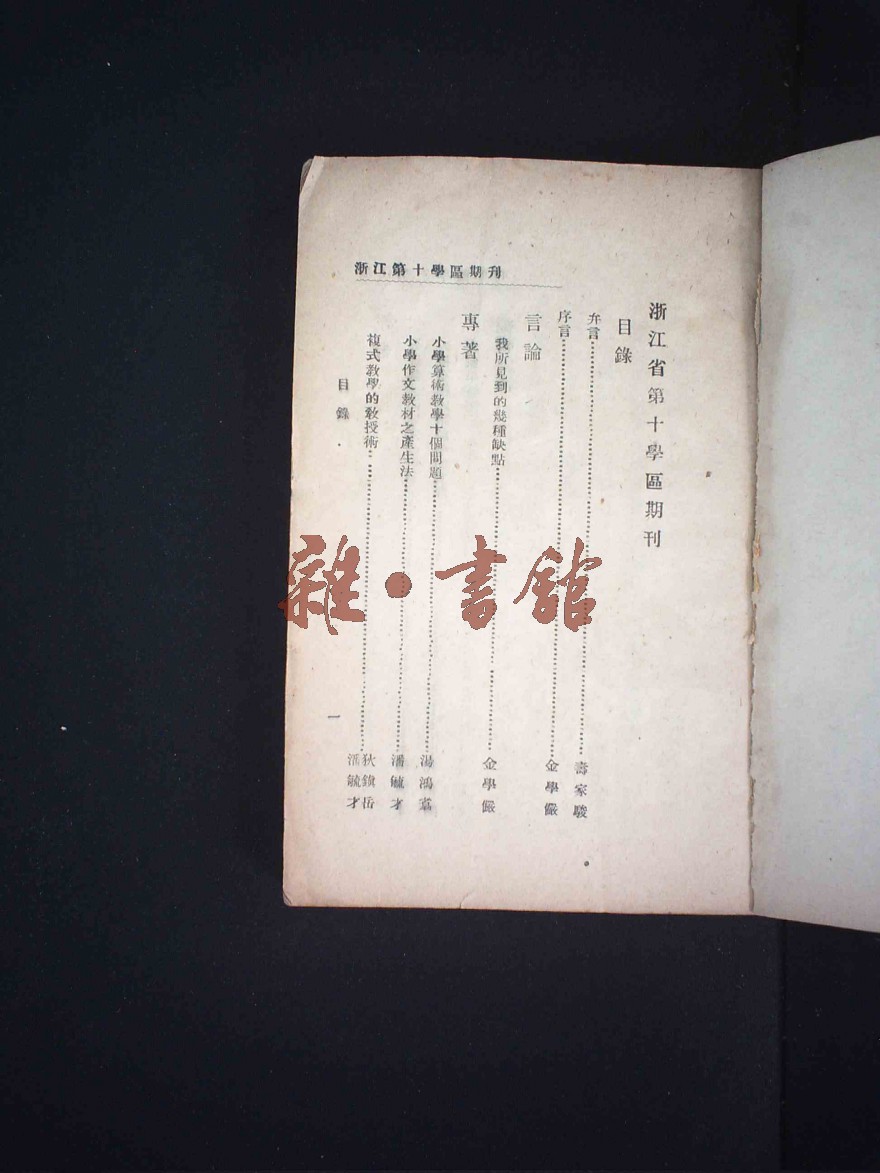 浙江第十學區期刊
浙江省第十學區期刊
目錄
弁言 壽家駿
序言 金學儼
言論
我所見到的幾種缺點 金學儼
專著
小學算術教學十個問題 湯鴻
小學作文教材之產生法 潘毓才
複式教學的教授術 狄鎮岳
毓才
目錄
一
雜·書館